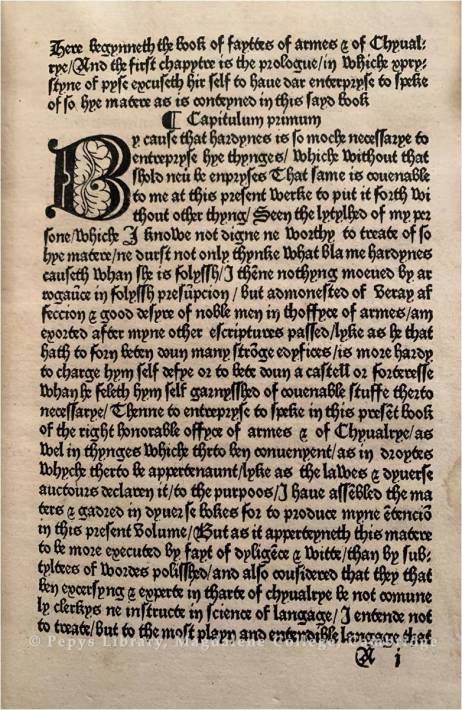 Here begynneth the book of fayttes of armes & of Chyual-
rye/And the first chapytre is the prologue/in whiche xpry-
styne of pyse excuseth hir self to haue dar enterpryse to speke
of so hye matere as is conteyned in this sayd book
¶ Capitulum primum
By cause that hardynes is so moche necessarye to
entrepryse hye thynges/ whiche without that
shold neuer be enpryses That same is couenable
to me at this present werke to put it forth wi
thout other thyng/ Seen the lytylhed of my per
sone/whiche I knowe not digne ne worthy to treate of so
hye matere/ne durst not only thynke what blame hardynes
causeth whan she is folyssh/ I thēne nothyng moeued by ar
rogaūce in folyssh presūpcion / but admonested of veray af
feccion & good desyre of noble men in thoffyce of armes/am
exorted after myne other escriptures passed/lyke as he that
hath to forn beten doun many strōge edyfices/is more hardy
to charge hym self defye or to bete doun a castell or forteresse
whan he feleth hym self garnysshed of couenable stuffe therto
necessarye/ Thenne to entrepryse to speke in this presēt book
of the right honorable offyce of armes & of Chyualrye/as
wel in thynges whiche thrto ben conuenyent/as in droytes
whyche therto be appertenaunt/lyke as the lawes & dyuerse
auctours declaren it/to the purpoos/I haue assēbled the ma
ters & gadred in dyuerse bokes for to produce myne ētencio͞
in this present volume/But as it apperteyneth this matere
to be more executed by fayt of dyligēce & witte/than by sub-
tyltees of wordes polisshed/and also cōsidered that they that
ben excersyng & experte in tharte of chyualrye be not comune
ly clerkys ne instructe in science of langage/ I entende not
to treate/but to the most playn and entendible langage that
A j
© Pepys Library, Magdalene College, Cambridge